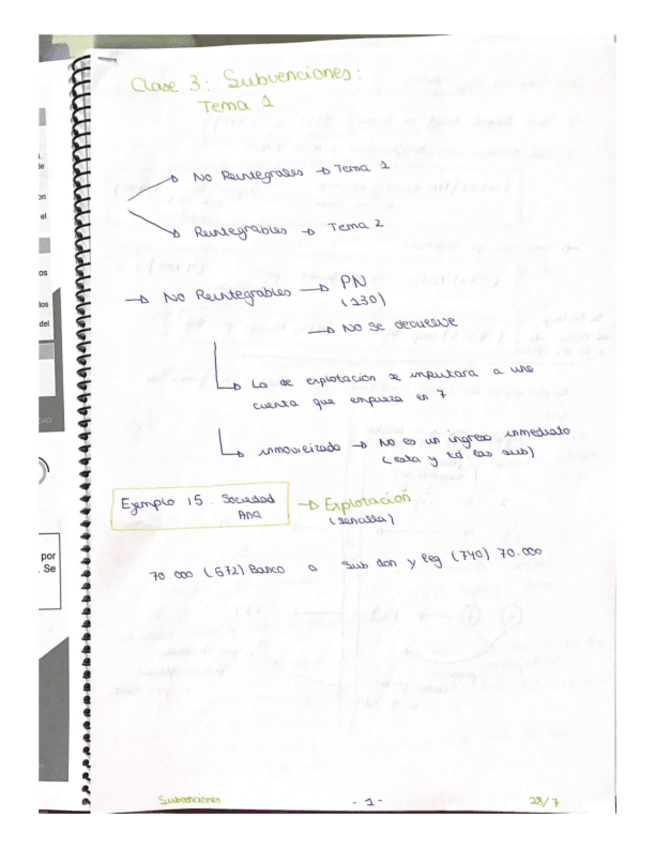 Clase 3: Subvenciones:
Tema 1
→ No Reintegrables → Tema 1
→ Reintegrables → Tema 2
→ No Reintegrables → PN
(130)
→ No se devuelve
→ La de explotación se imputara a una
cuenta que empieza en 7
→ inmovilizado → No es un ingreso inmediato
(esta y td las sub)
Ejemplo 15. Sociedad
Ana
→ Explotación
(sencilla)
70 000 (572) Banco a Sub don y leg (740) 70.000
Subvenciones - 1 - 28/7
on
el
os
los
del
DAD
por
. Se